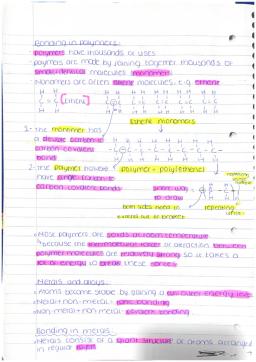 Bonding in polymers:
polymers have thousands of uses
polymers are made by joining together thousands of
small identical molecules monomers
Monomers are often alkene molecules e.g. ethene
H H
C = C [Ethene]
H H
Ethene monomers
1- The monomer has
a double carbon to
carbon covalent
bond
2- The polymer
polymer - poly(ethene)
have single carbon to
carbon covalent bonds
short way
to draw
both sides need to
extend out of bracket
repeating
units
Most polymers are solids at room temperature
because the intermolecular forces of attraction between
polymer molecules are relatively strong so it takes a
lot of energy to break these bonds
Metals and alloys:
Atoms become stable by gaining a full outer energy level
Metal + non-metal = ionic bonding
Non-metal + non-metal = covalent bonding
Bonding in metals:
Metals consist of a giant structure of atoms arranged
in regular